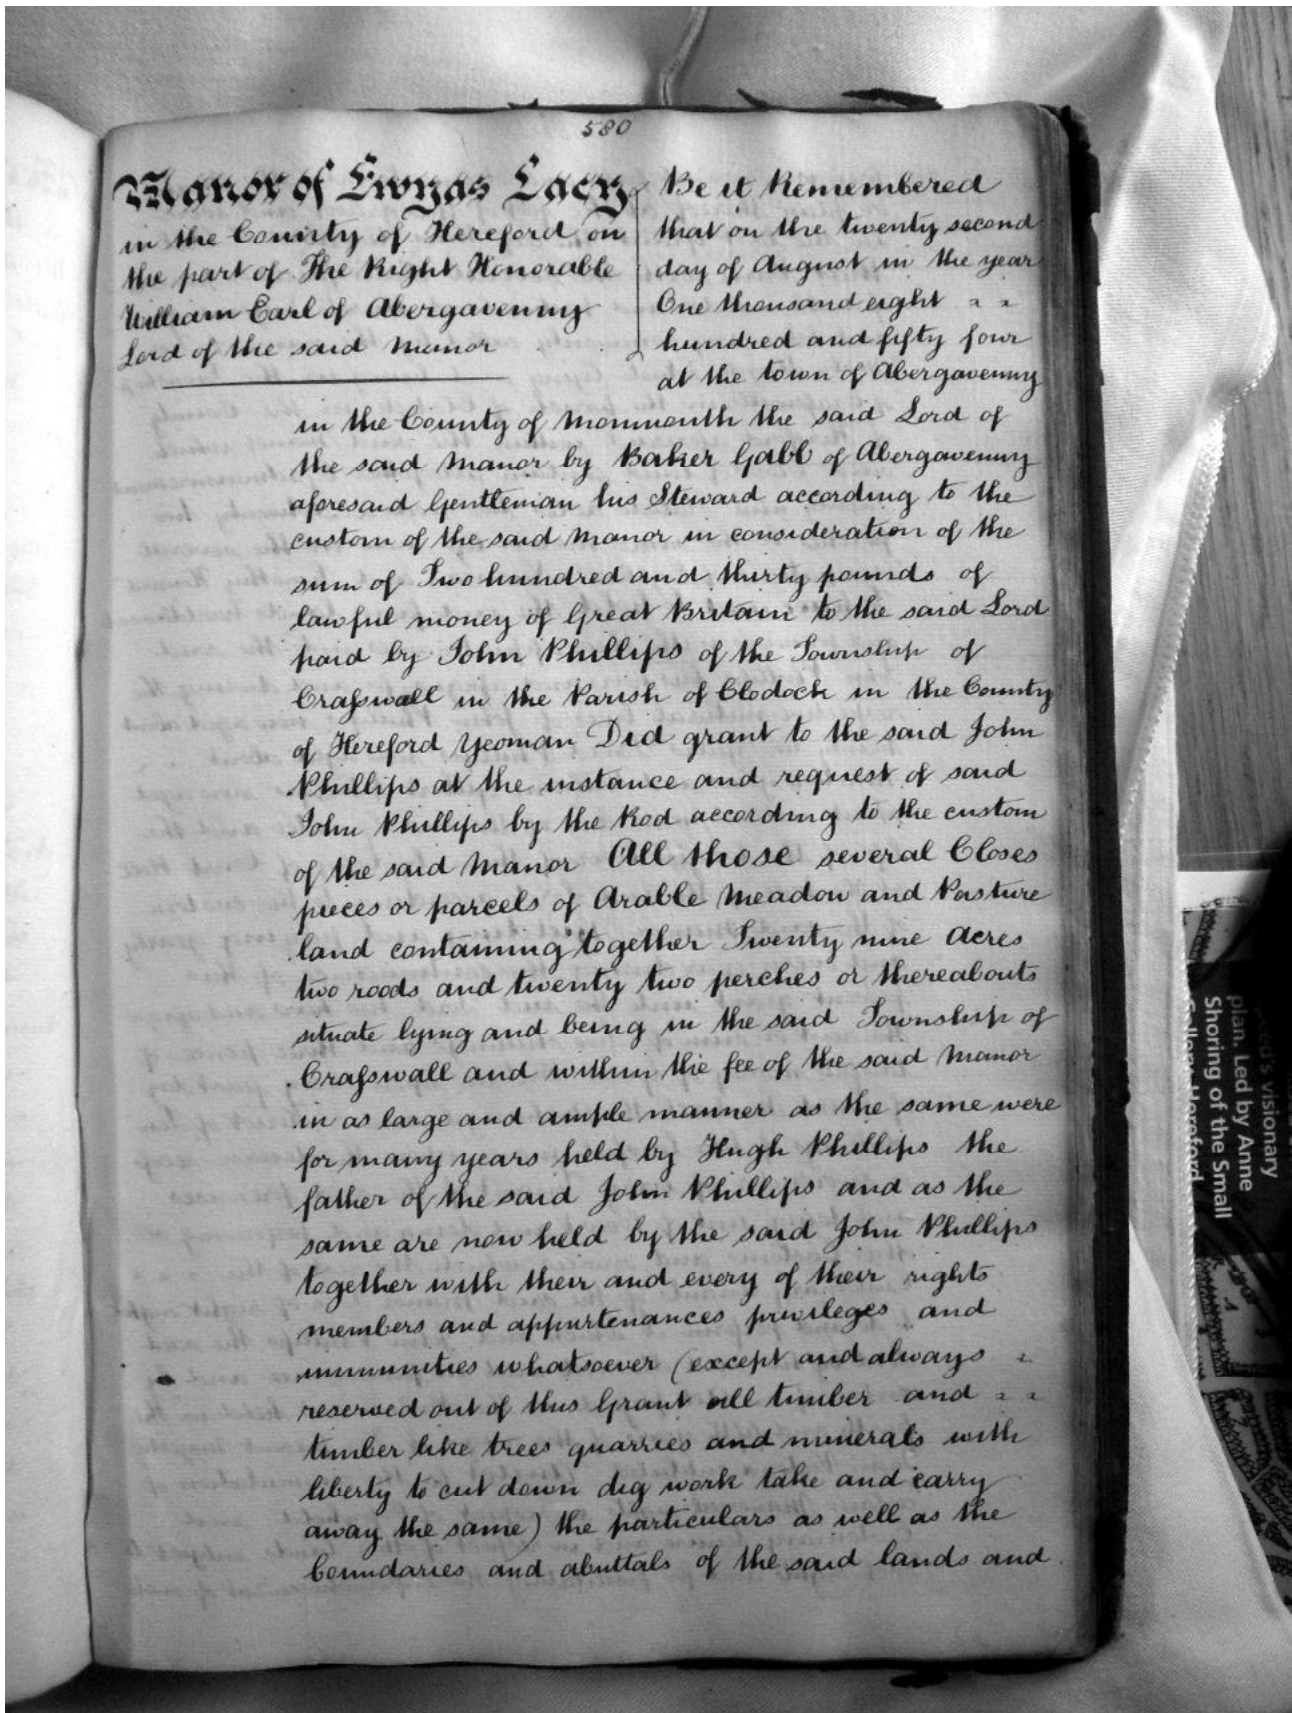 580
Manor of Ewyas Lacy
in the County of Hereford on
the part of The Right Honorable
William Earl of Abergavenny
Lord of the said Manor
Be it Remembered
that on the twenty second
day of August in the year
One thousand eight " "
hundred and fifty four
at the town of Abergavenny
in the County of Monmouth the said Lord of
the said Manor by Baker Gabb of Abergavenny
aforesaid Gentleman his Steward according to the
custom of the said Manor in consideration of the
sum of Two hundred and thirty pounds of
lawful money of Great Britain to the said Lord
paid by John Phillips of the Township of
Craſswall in the Parish of Clodock in the County
of Hereford Yeoman Did grant to the said John
Phillips at the instance and request of said
John Phillips by the Rod according to the custom
of the said Manor All those several Closes
pieces or parcels of Arable Meadow and Pasture
land containing together Twenty nine Acres
two roods and twenty two perches or thereabouts
situate lying and being in the said Township of
Craſswall and within the fee of the said Manor
in as large and ample manner as the same were
for many years held by Hugh Phillips the
father of the said John Phillips and as the
same are now held by the said John Phillips
together with their and every of their rights
members and appurtenances privileges and
immunities whatsoever (except and always "
reserved out of this Grant all timber and " "
timber like trees quarries and minerals with
liberty to cut down dig work take and carry
away the same) the particulars as well as the
boundaries and abuttals of the said lands and
visionary
plan. Led by Anne
Shoring of the Small
Hereford